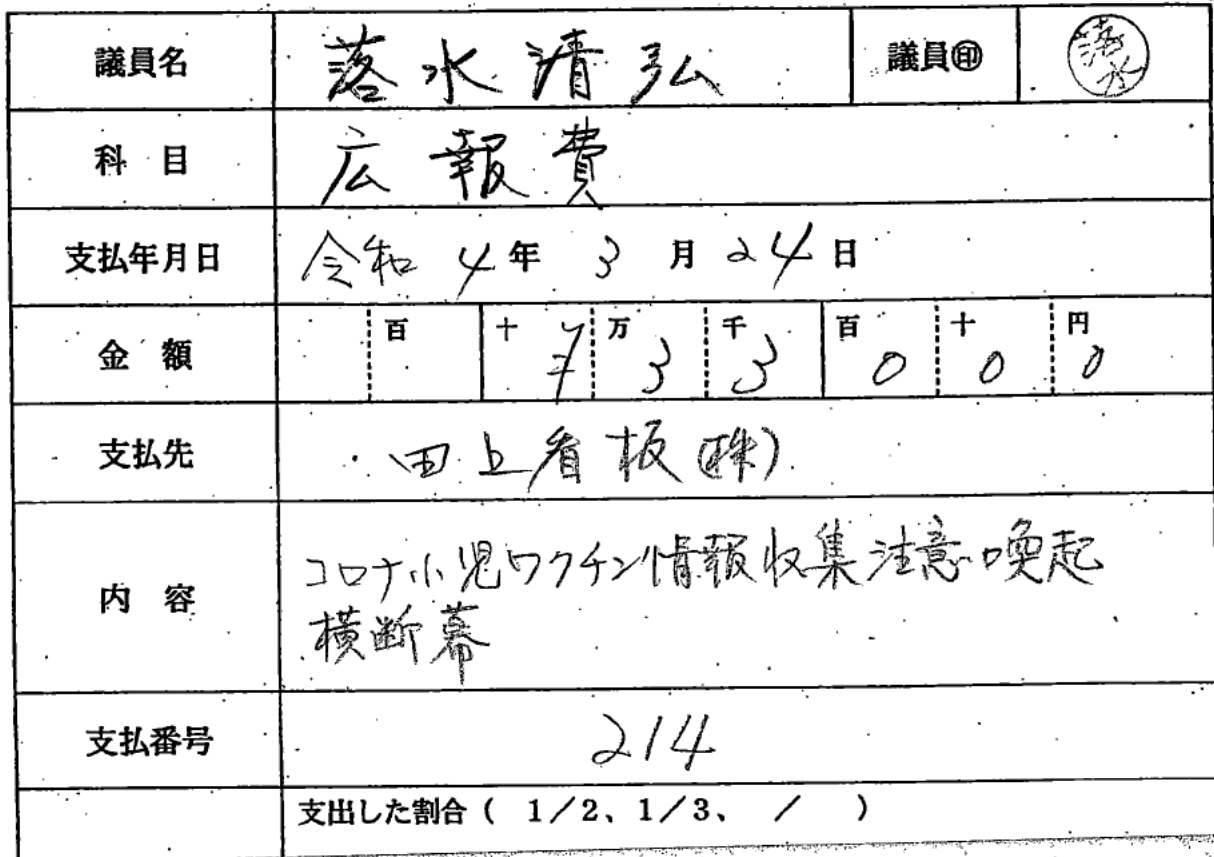 議員名 落水清弘 議員㊞ 落水
科目 広報費
支払年月日 令和4年3月24日
金額 百 十 ¥ 万 3 千 3 百 0 十 0 円 0
支払先 田上看板(株)
内容 コロナ小児ワクチン情報収集注意喚起
横断幕
支払番号 214
支出した割合( 1/2、1/3、 / )